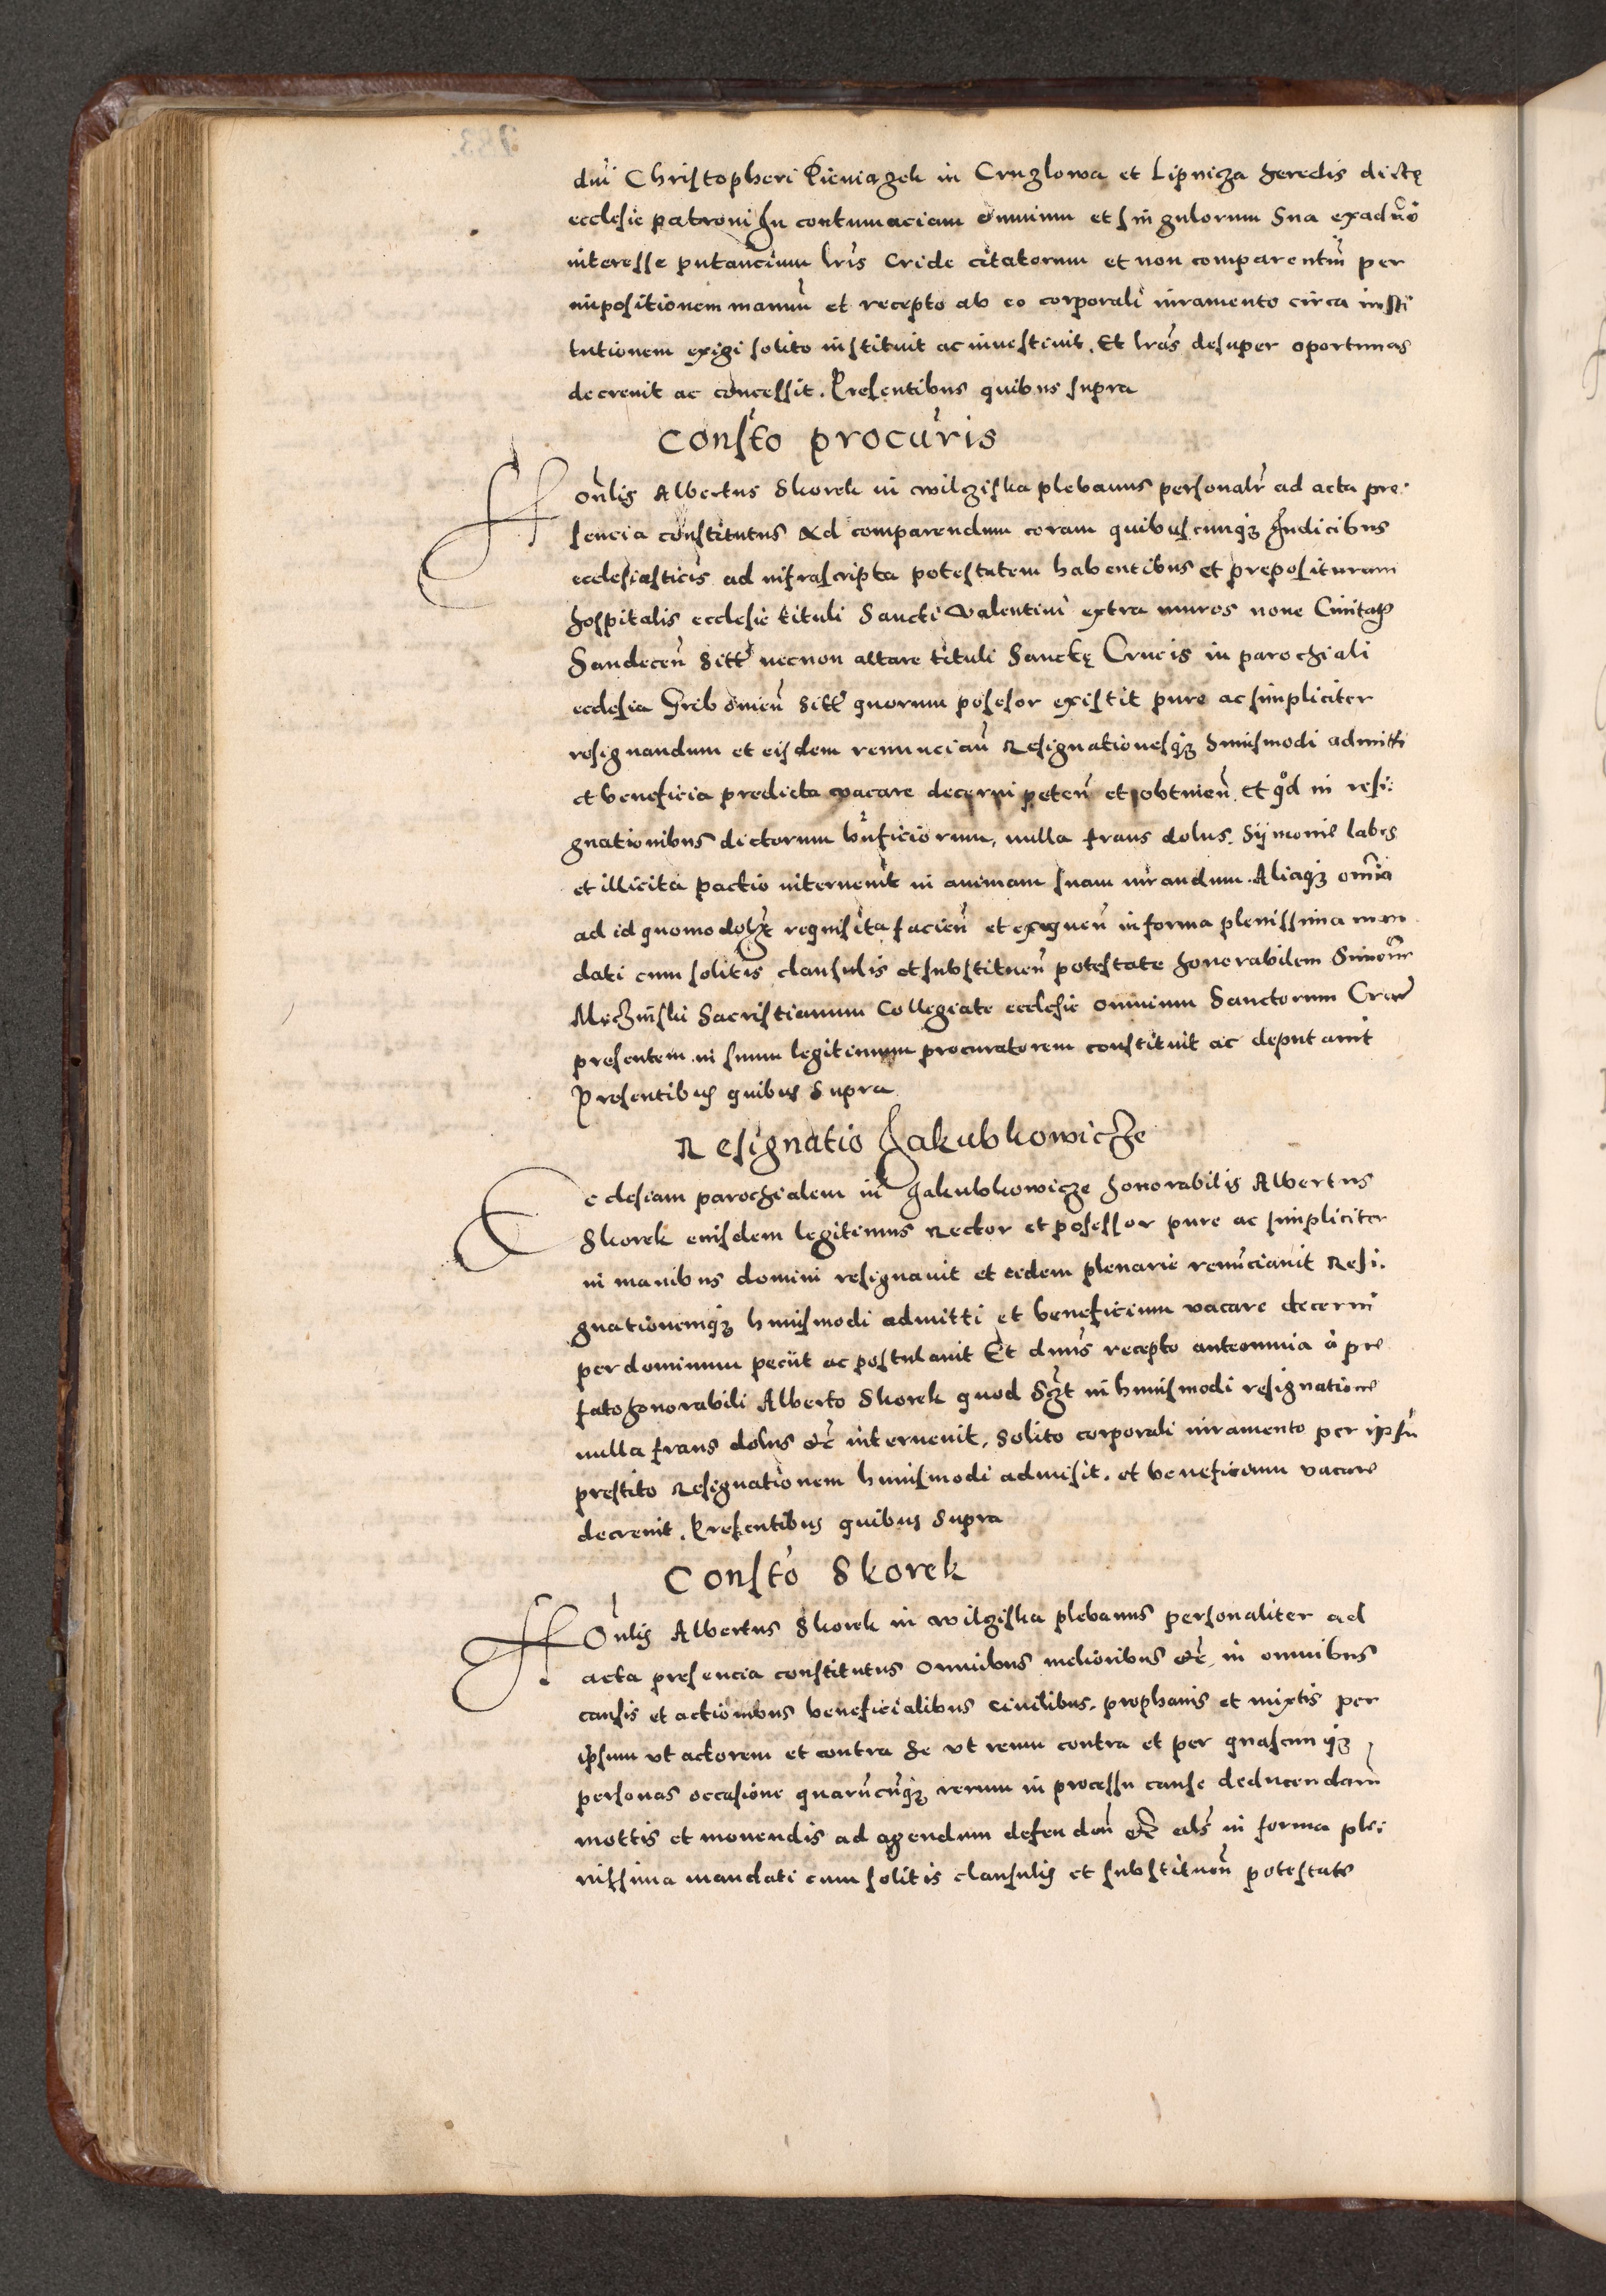 dni Christopheri Pieniazek in Cruzlowa et Lipnicza heredis dictę
ecclesie patroni In contumaciam omnium et singulorum sua
interesse putancium lris Cride citatorum et non comparentiu per
impositionem manuu et recepto ab eo corporali iuramento circa insti
tutionem exigi solito instituit ac inuestiuit. Et lras desuper oportunas
decreuit ac concessit. Presentibus quibus supra
Consto procuris
Honlis Albertus Skorek in Wilgiska plebanus personalr ad acta pre:
sencia constitutus Ad comparendum coram quibuscunqz Iudicibus
ecclesiasticis ad infrascripta potestatem habentibus et preposituram
hospitalis ecclesie tituli Sancti Valentini extra muros noue Ciuitatis
Sandecen sitt necnon altare tituli Sanctę Crucis in parochiali
ecclesia Gribouien sitt quorum posesor existit pure ac simpliciter
resignandum et eisdem renuncian Resignationesqz huiusmodi admitti
et beneficia predicta vacare decerni peten et obtinen et qod in resi:
gnationibus dictorum bnficiorum, nulla fraus dolus. Symonie labes
et illicita pactio interuenit in animam suam iurandum. Aliaqz omia
ad id quomodolzt requisita facien et exequen in forma plenissima man
dati cum solitis clausulis et substituen potestate honorabilem Simone
Męczinski Sacristianum Collegiate ecclesie omnium Sanctorum Crac
presentem in suum legitimum procuratorem constituit ac deputauit
Presentibus quibus supra
Resignatio Jakubkowicze
Ecclesiam parochialem in Jakubkowicze honorabilis Albertus
Skorek eiusdem legitimus Rector et posessor pure ac simpliciter
in manibus domini resignauit et eidem plenarie renunciauit Resi.
gnationemqz huiusmodi admitti et beneficium vacare decerni
per dominum peciit ac postulauit Et dnus recepto anteomnia à pre
fato honorabili Alberto Skorek quod in huiusmodi resignatione
nulla fraus dolus etc interuenit, solito corporali iuramento per ipsu
prestito Resignationem huiusmodi admisit. et beneficium vacare
decreuit. Presentibus quibus supra
Consto Skorek
Honlis Albertus Skorek in Wilgiska plebanus personaliter ad
acta presencia constitutus omnibus melioribus etc in omnibus
causis et actionibus beneficialibus ciuilibus. prophanis et mixtis per
ipsum vt actorem et contra se vt reum contra et per quascunqz
personas occasione quarucuqz rerum in processu cause deducendaru
mottis et mouendis ad agendum defenden etc als in forma ple:
nissima mandati cum solitis clausulis et substituen potestate